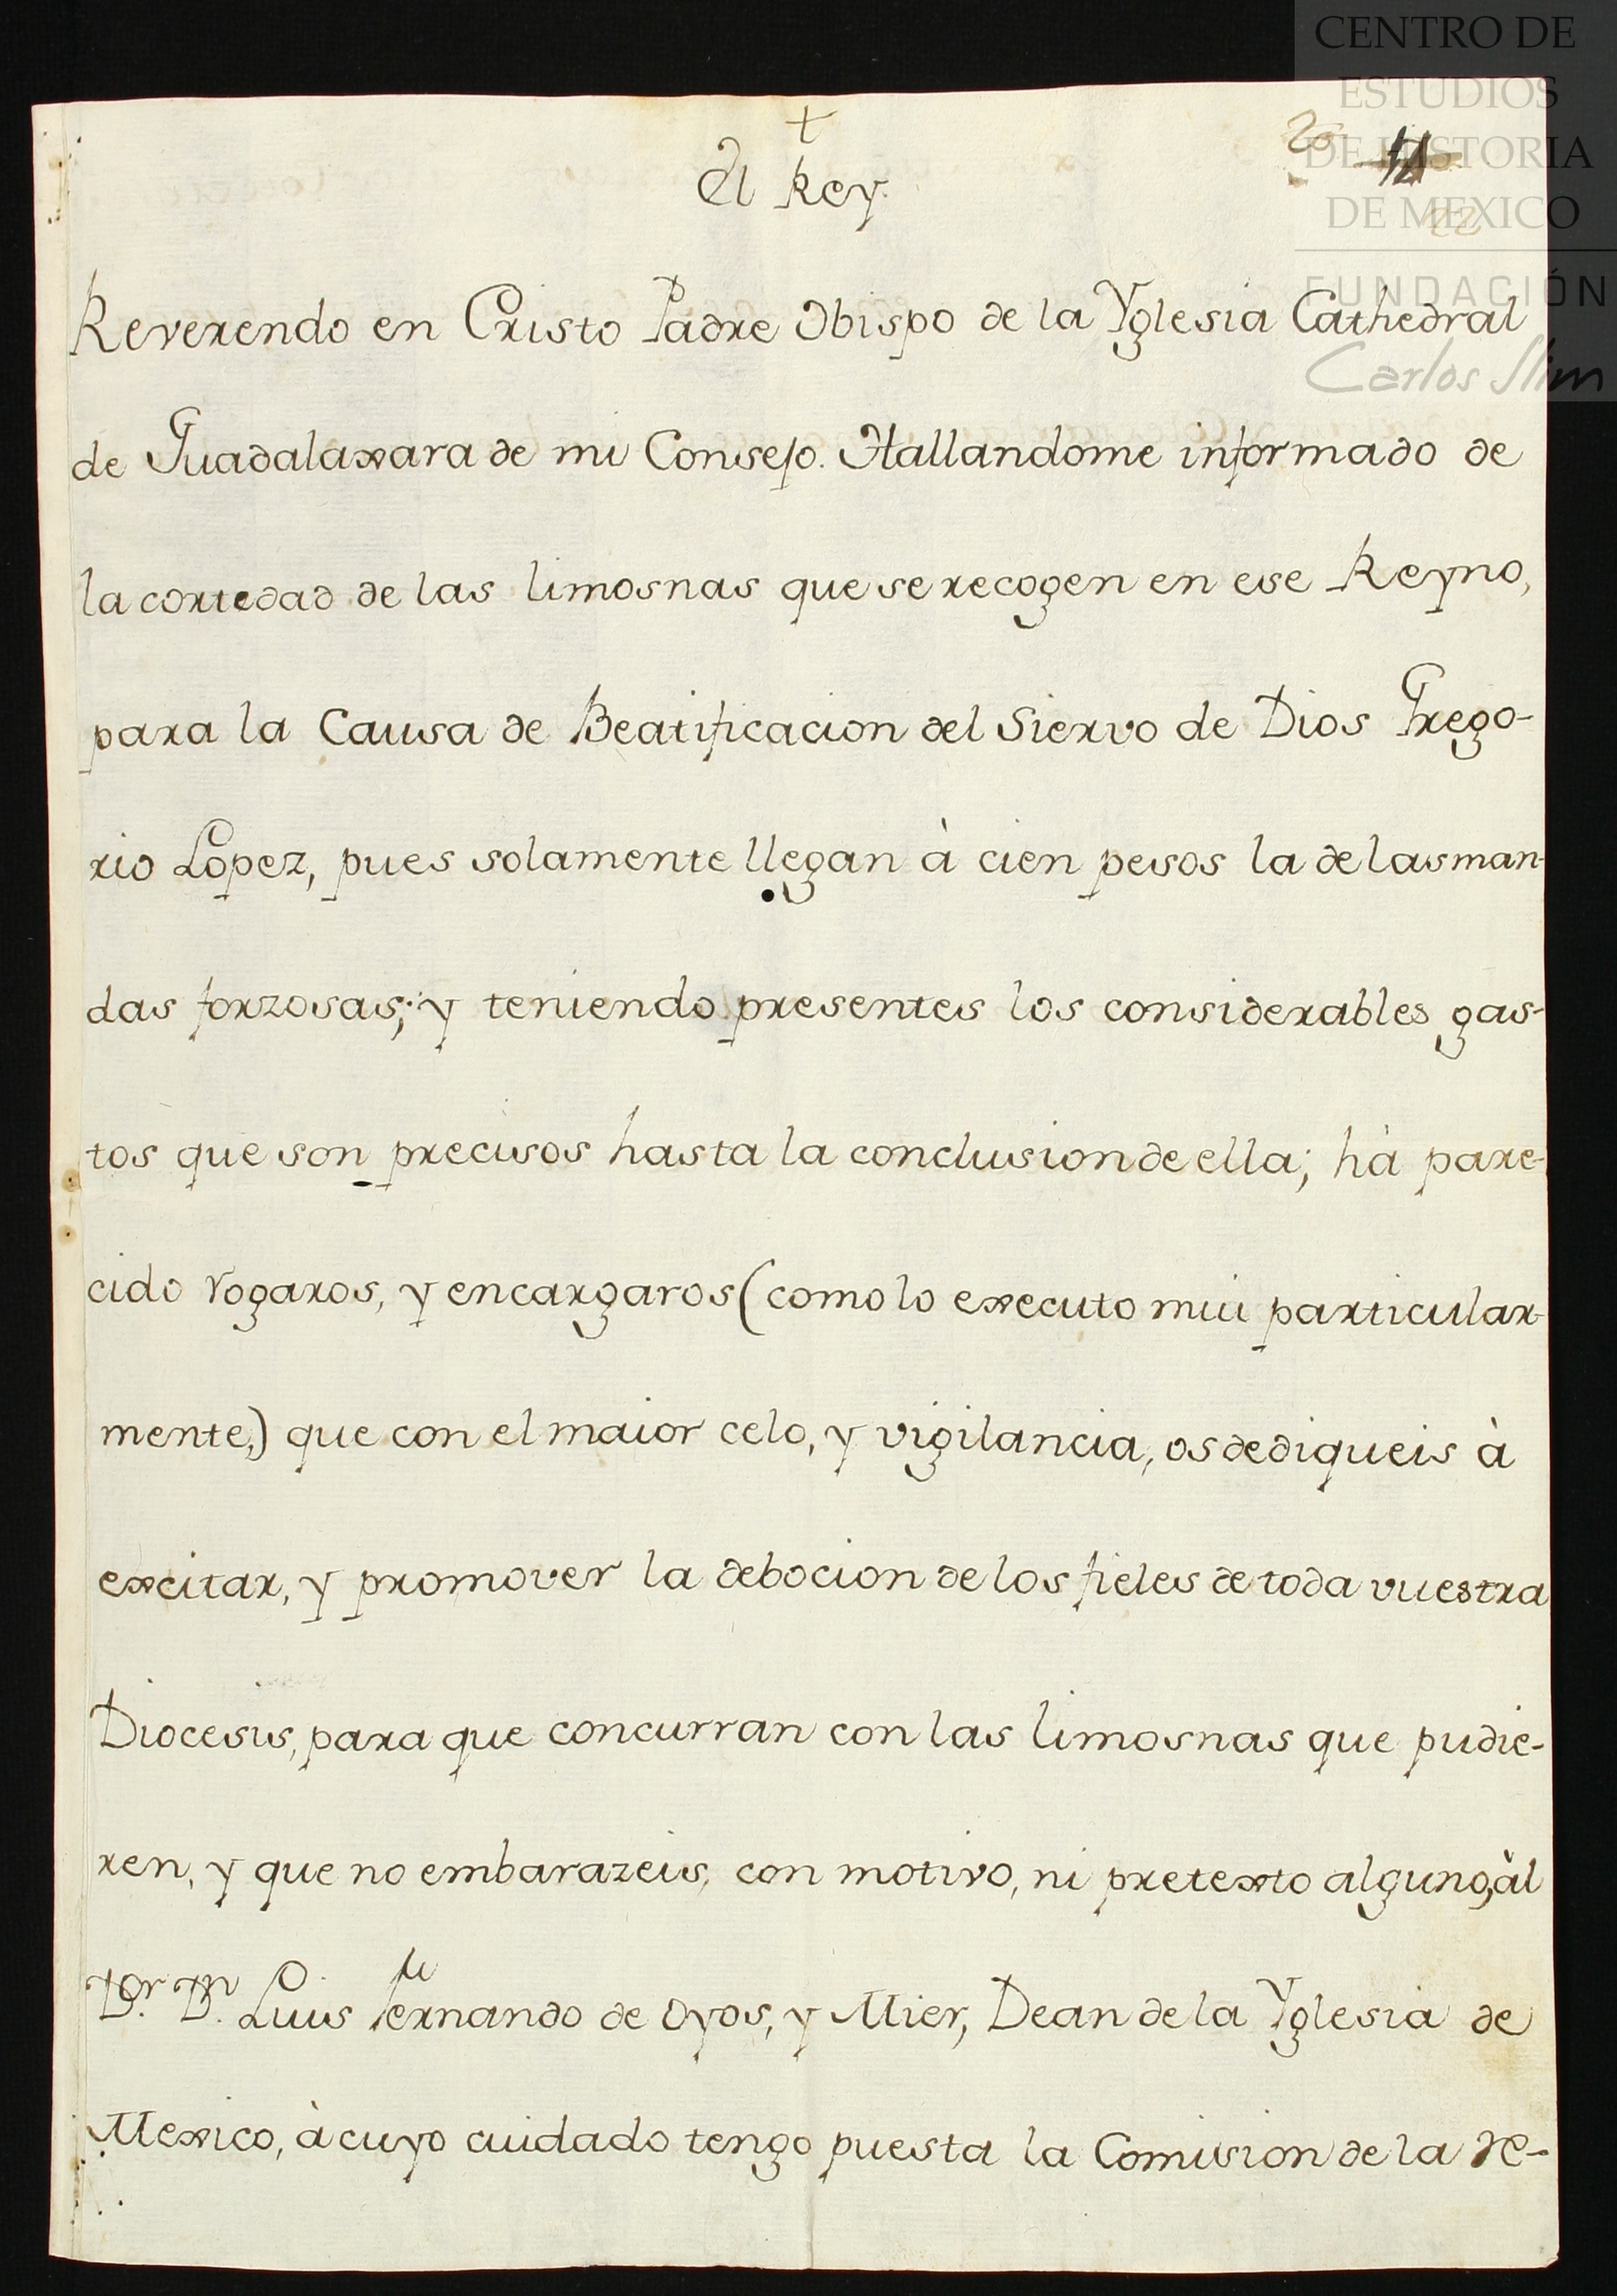 CENTRO DE
ESTUDIOS
DE HISTORIA
DE MEXICO
FUNDACIÓN
Carlos Slim
+
El Rey.
Reverendo en Cristo Padre Obispo de la Yglesia Cathedral
de Guadalaxara de mi Consejo. Hallandome informado de
la cortedad de las limosnas que se recogen en ese Reyno,
para la Causa de Beatificacion del Siervo de Dios Grego-
rio Lopez, pues solamente llegan à cien pesos la de las man-
das forzosas; y teniendo presentes los considerables gas-
tos que son precisos hasta la conclusion de ella; hà pare-
cido rogaros, y encargaros (como lo executo mui particular-
mente,) que con el maior celo, y vigilancia, os dediqueis à
excitar, y promover la debocion de los fieles de toda vuestra
Diocesis, para que concurran con las limosnas que pudie-
ren, y que no embarazeis, con motivo, ni pretexto alguno, àl
Dor. Dn. Luis Fernando de Oyos, y Mier, Dean de la Yglesia de
Mexico, à cuyo cuidado tengo puesta la Comision de la re-